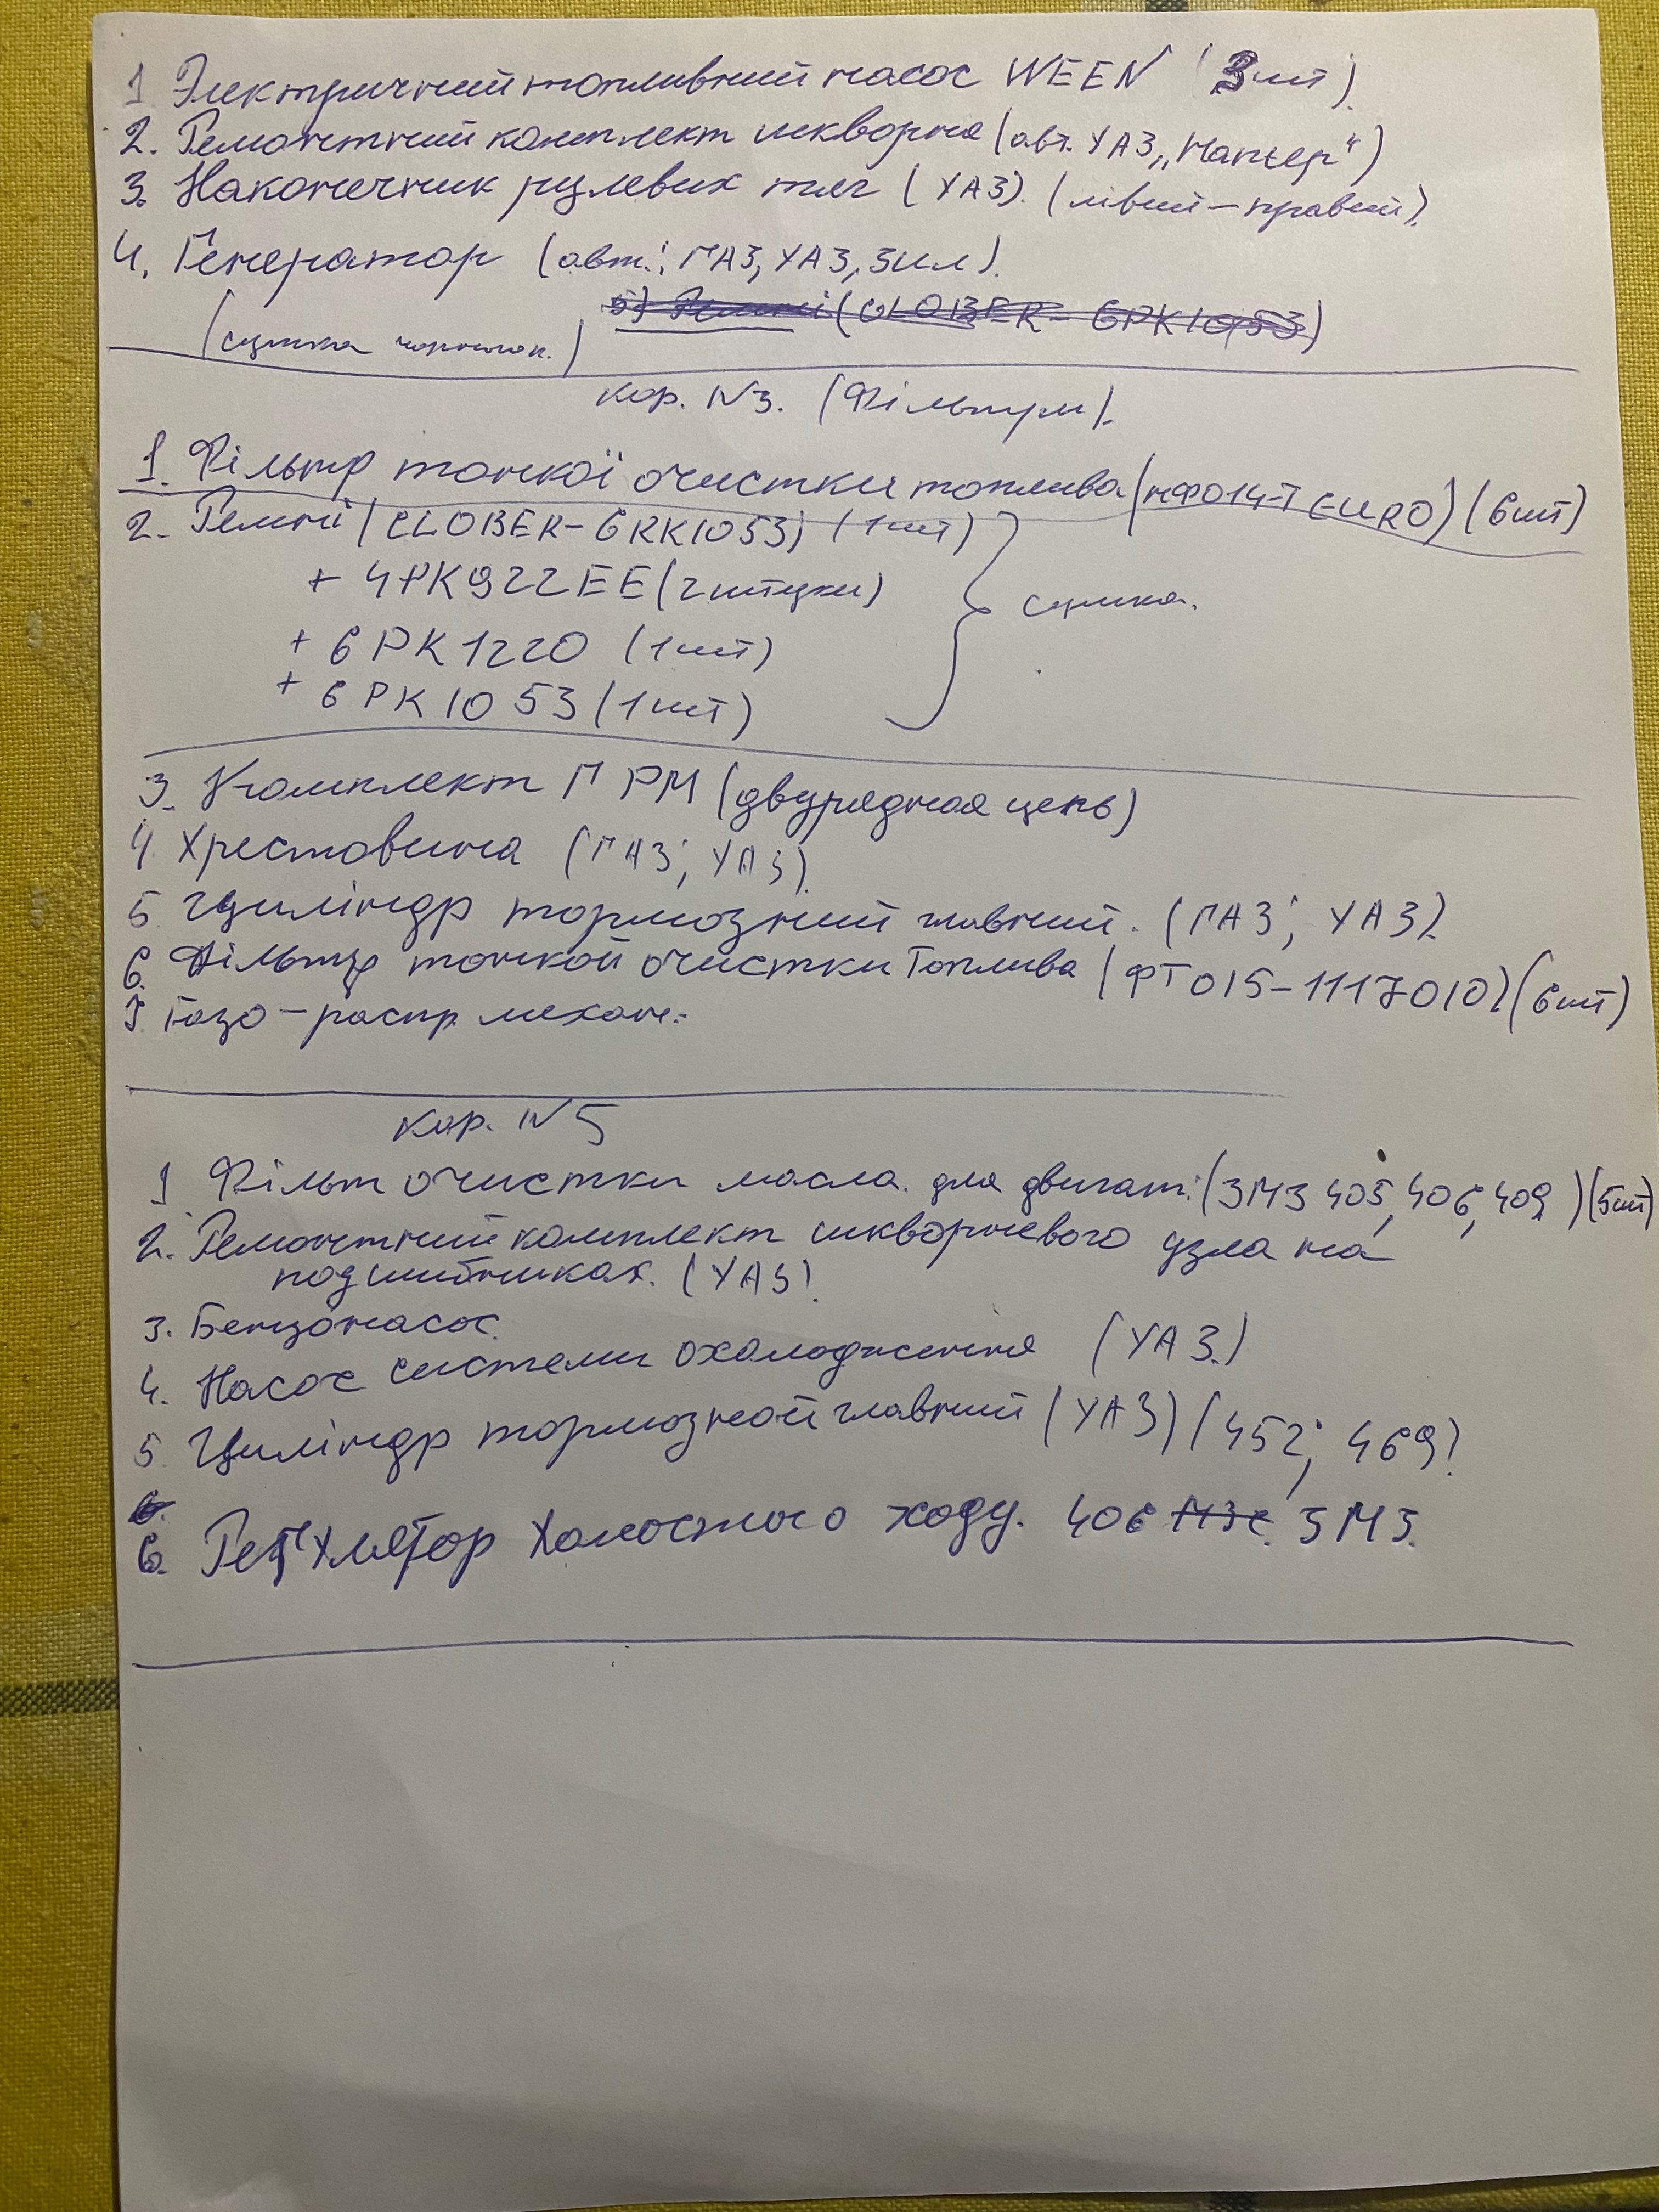 1 Электричний топливний насос WEEN (3шт).
2. Ремонтний комплект шкворня (авт. УАЗ „Патьер")
3. Наконечник рулевих тяг (УАЗ). (лівий – правий).
4. Генератор (авт.; ГАЗ, УАЗ, Зил).
5) Ремні (CLOBER – 6PK1053)
(сумка чорн.)
кор. N3. (Фільтри).
1. Фільтр тонкої очистки топлива (НФ014-Т EURO) (6шт)
2. Ремні (CLOBER – 6RK1053) (1шт)
+ 4PK922EE (2 штуки)
сумка.
+ 6PK1220 (1шт)
+ 6PK1053 (1шт)
3. Комплект ГРМ (двурядная цепь)
4 Хрестовина (ГАЗ; УАЗ).
5 Циліндр тормозний главний. (ГАЗ; УАЗ).
6. Фільтр тонкой очистки топлива (ФТ015-1117010) (6шт)
7 Газо – распр. механ.
Кор. N5
1 Фільт очистки масла. для двигат. (ЗМЗ 405, 406, 409) (5шт)
2. Ремонтний комплект шкворневого узла на
подшибниках. (УАЗ)
3. Бензонасос.
4. Насос системи охолодження (УАЗ.)
5 Циліндр тормозной главний (УАЗ) (452; 469)
6. Регулятор холостого ходу. 406 ЗМЗ.